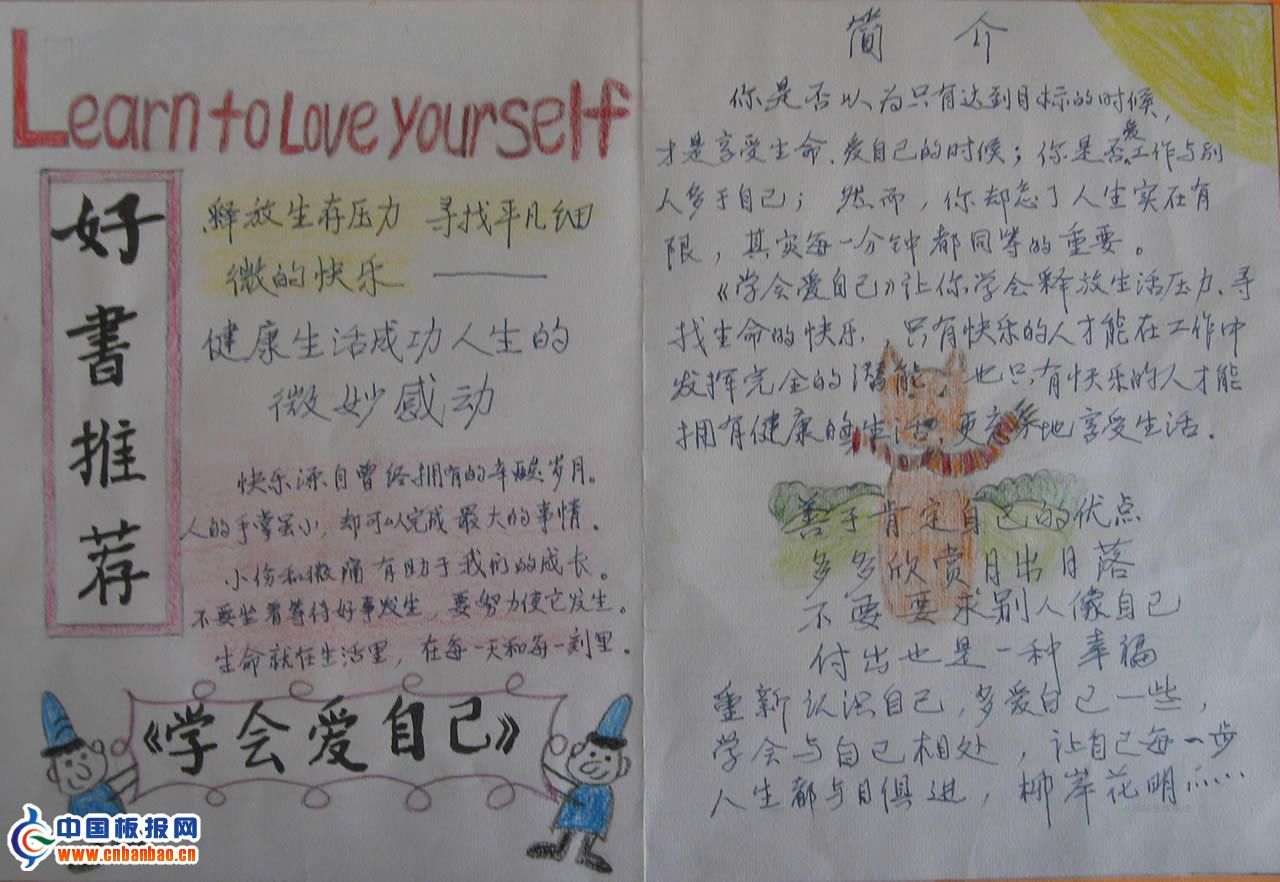 Learn to Love yourself
好書推荐
释放生存压力 寻找平凡细
微的快乐 ——
健康生活成功人生的
微妙感动
快乐源自曾经拥有的辛酸岁月。
人的手掌虽小,却可以完成最大的事情。
小伤和微痛有助于我们的成长。
不要坐着等待好事发生,要努力使它发生。
生命就在生活里,在每一天和每一刻里。
《学会爱自己》
简 介
你是否以为只有达到目标的时候,
才是享受生命、爱自己的时候;你是否爱工作与别
人多于自己;然而,你却忘了人生实在有
限,其实每一分钟都同等的重要。
《学会爱自己》让你学会释放生活压力、寻
找生命的快乐,只有快乐的人才能在工作中
发挥完全的潜能,也只有快乐的人才能
拥有健康的生活,更 地享受生活.
善于肯定自己的优点
多多欣赏月出月落
不要要求别人像自己
付出也是一种幸福
重新认识自己,多爱自己一些,
学会与自己相处,让自己每一步
人生都与日俱进,柳岸花明……
中国板报网
www.cnbanbao.cn